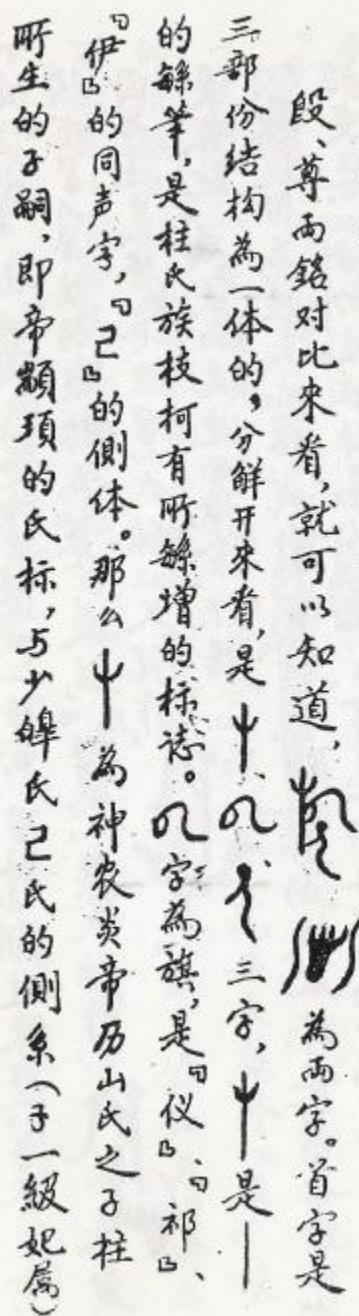 段、尊两銘对比来看,就可以知道,为两字。首字是
三部份结构为一体的,分解开来看,是、、三字,是
的緐笔,是柱氏族枝柯有所緐增的标誌。字为旗,是『仪』、『祁』、
『伊』的同声字,『己』的侧体。那么为神农炎帝历山氏之子柱
所生的子嗣,即帝颛顼的氏标,与少皞氏己氏的侧系(子一級妃属)